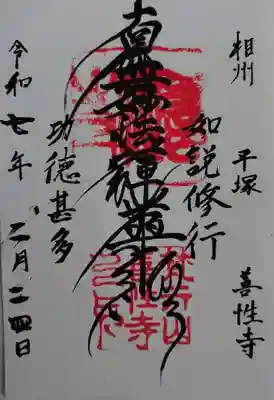 相州 平塚 善性寺
如説修行
南無妙法蓮華経
功徳甚多
令和七年 二月二四日